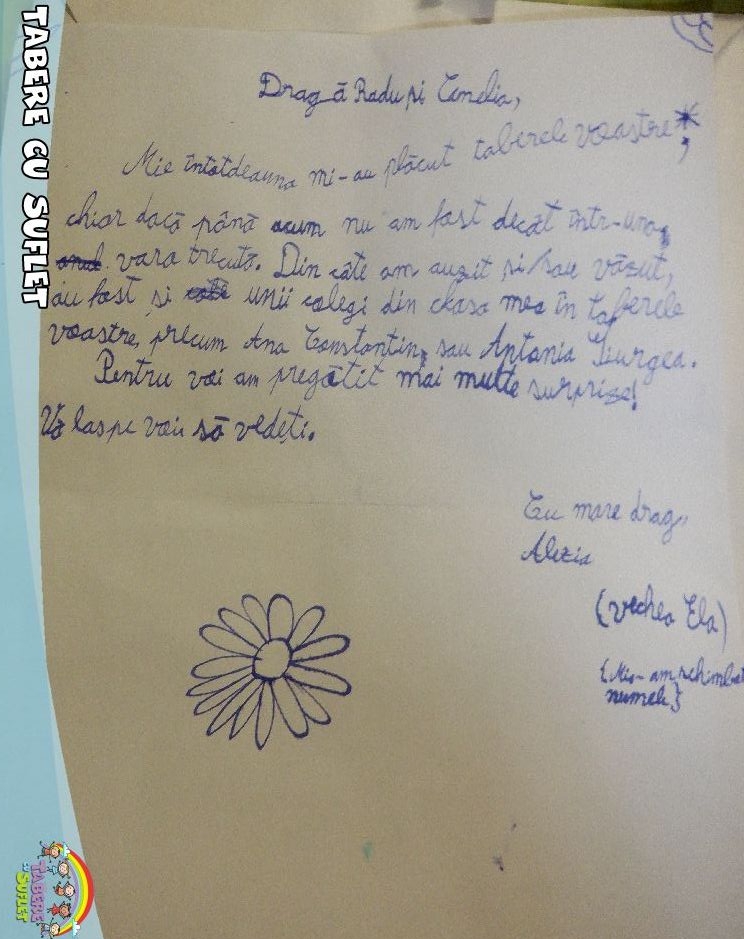 TABERE CU SUFLET
Dragă Radu și Camelia,
Mie întotdeauna mi-au plăcut taberele voastre,
chiar dacă până acum nu am fost decât într-una,
vara trecută. Din câte am auzit și/sau văzut,
au fost și unii colegi din clasa mea în taberele
voastre, precum Ana Constantin, sau Antonia Giurgea.
Pentru voi am pregătit mai multe surprize!
Vă las pe voi să vedeți.
Cu mare drag,
Alezia
(vechea Ela)
{Mio-am schimbat
numele}
TABERE
CU
SUFLET